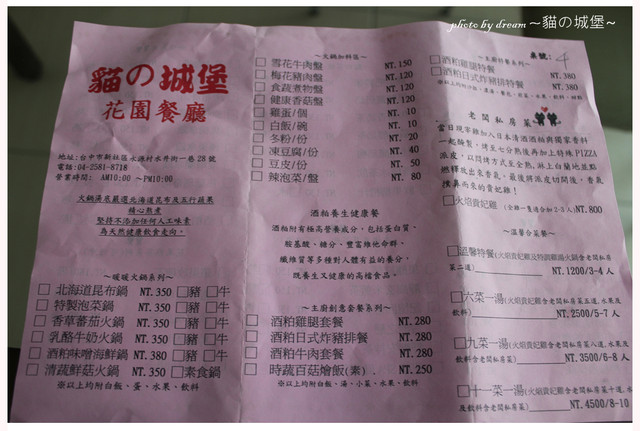 photo by dream ～貓の城堡～
貓の城堡
花園餐廳
地址:台中市新社區永源村水井街一巷28號
電話:04-2581-8718
營業時間: AM10:00 ～PM10:00
火鍋湯底嚴選北海道昆布及五行蔬果
精心熬煮
堅持不添加任何人工味素
為天然健康飲食走向。
～暖暖火鍋系列～
□ 北海道昆布鍋 NT.350 □豬 □牛
□ 特製泡菜鍋 NT.350 □豬 □牛
□ 香草蕃茄火鍋 NT.350 □豬 □牛
□ 乳酪牛奶火鍋 NT.350 □豬 □牛
□ 酒粕味噌海鮮鍋 NT.380 □豬 □牛
□ 清蔬鮮菇火鍋 NT.350 □素食鍋
※以上均附白飯、蛋、水果、飲料
～火鍋加料區～
□ 雪花牛肉盤 NT.150
□ 梅花豬肉盤 NT.120
□ 食蔬煮物盤 NT.120
□ 健康香菇盤 NT.120
□ 雞蛋/個 NT.10
□ 白飯/碗 NT.10
□ 冬粉/份 NT.20
□ 凍豆腐/份 NT.40
□ 豆皮/份 NT.50
□ 辣泡菜/盤 NT.80
酒粕養生健康餐
酒粕附有極高營養成分，包括蛋白質、
胺基酸、糖分、豐富維他命群，
纖維質等多種對人體有益的養分，
既養生又健康的高檔食品。
～主廚創意套餐系列～
□ 酒粕雞腿套餐 NT.280
□ 酒粕日式炸豬排餐 NT.280
□ 酒粕牛肉套餐 NT.280
□ 時蔬百菇燴飯(素). NT.250
※以上均附白飯、湯、小菜、水果、飲料
～主廚特餐系列～
桌號: 4
□酒粕雞腿特餐 NT.380
□酒粕日式炸豬排特餐 NT.380
老闆私房菜
當日現宰雞加入日本清酒酒粕與獨家香料
一起醃製，烤至七分熟後再加上特殊PIZZA
派皮，以悶烤方式至全熟，淋上白蘭地並點
燃釋放出來香氣，最後將派皮切開後，香氣
撲鼻而來的貴妃雞！
□火焰貴妃雞 (全雞一隻適合加2-3人)NT.800
～溫馨合菜餐～
□溫馨特餐(火焰貴妃雞及特調雞湯火鍋含老闆私房
菜二道) NT.1200/3-4人
□六菜一湯(火焰貴妃雞含老闆私房菜五道,水果及
飲料) NT.2500/5-7人
□九菜一湯(火焰貴妃雞含老闆私房菜八道,水果及
飲料含老闆私房菜) NT.3500/6-8人
□十一菜一湯(火焰貴妃雞含老闆私房菜十道,水
果及飲料含老闆私房菜) NT.4500/8-10